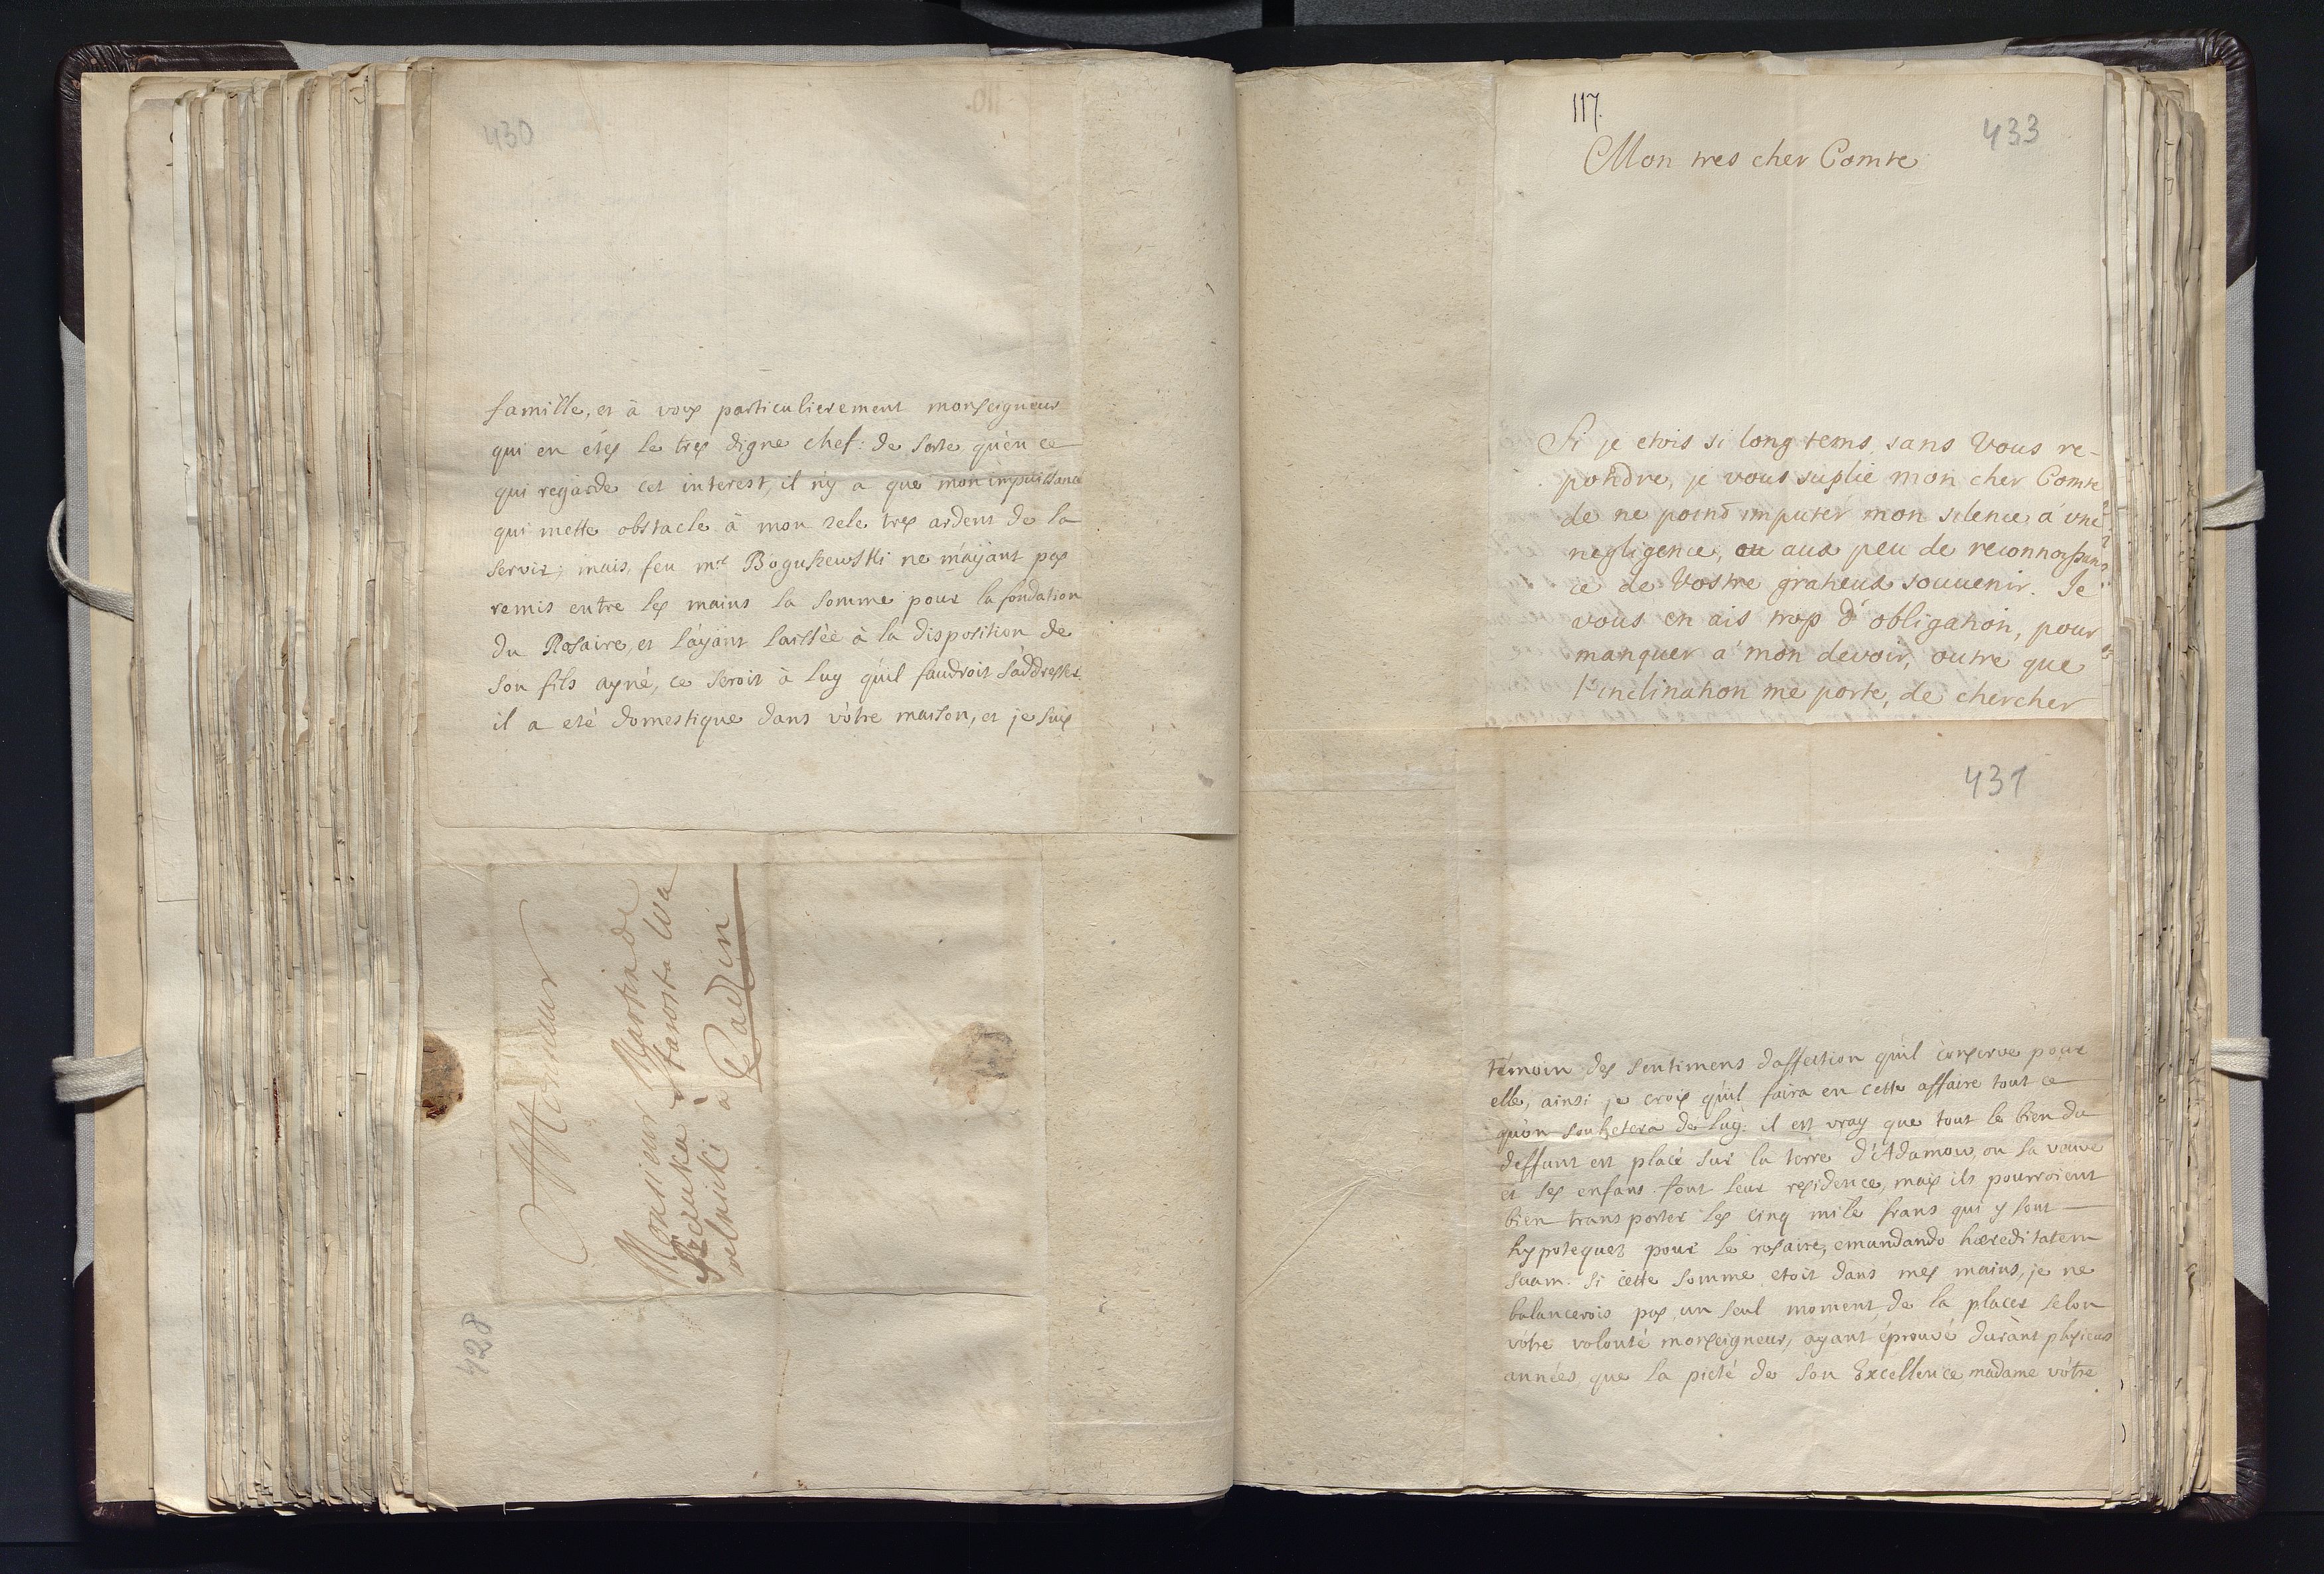 430
famille, et à vous particulierement monseigneur
qui en etes le tres digne chef: de sorte qu'en ce
qui regarde cet interest, il n'y a que mon impuissance
qui mette obstacle à mon zele tres ardent de la
servir; mais, feu mr Boguszewski ne m'ayant pas
remis entre les mains la somme pour la fondation
du Rosaire, et l'ayant laissée à la disposition de
son fils ayné, ce seroit à luy qu'il faudroit s'addresser
il a eté domestique dans vôtre maison, et je suis
A Monsieur
Monsieur Martin de
Kczewski Starosta
à Cadzin
428
117.
433
Mon tres cher Comte
Si je etois si long tems sans Vous re-
pondre, je vous suplie mon cher Comte
de ne poind imputer mon silence á vne
negligence, ou aux peu de reconnoissan
ce de Vostre gratieux souuenir. Je
vous en ais trop d'obligation, pour
manquer a mon devoir, outre que
l'inclination me porte, de chercher
431
témoin des sentimens d'affection qu'il conserve pour
elle, ainsi je crois qu'il faira en cette affaire tout ce
qu'on souhetera de luy: il est vray que tout le bien du
deffunt est placé sur la terre d'Adamow, ou sa veuve
et ses enfans font leur residence, mais ils pourroient
bien transporter les cinq mile frans qui y sont
hypotequez pour le rosaire, emundando hæreditatem
suam. si cette somme etoit dans mes mains, je ne
balancerois pas un seul moment de la placer selon
vôtre volonté monseigneur, ayant éprouvé durant plusieurs
années, que la pieté de son Excellence madame vôtre